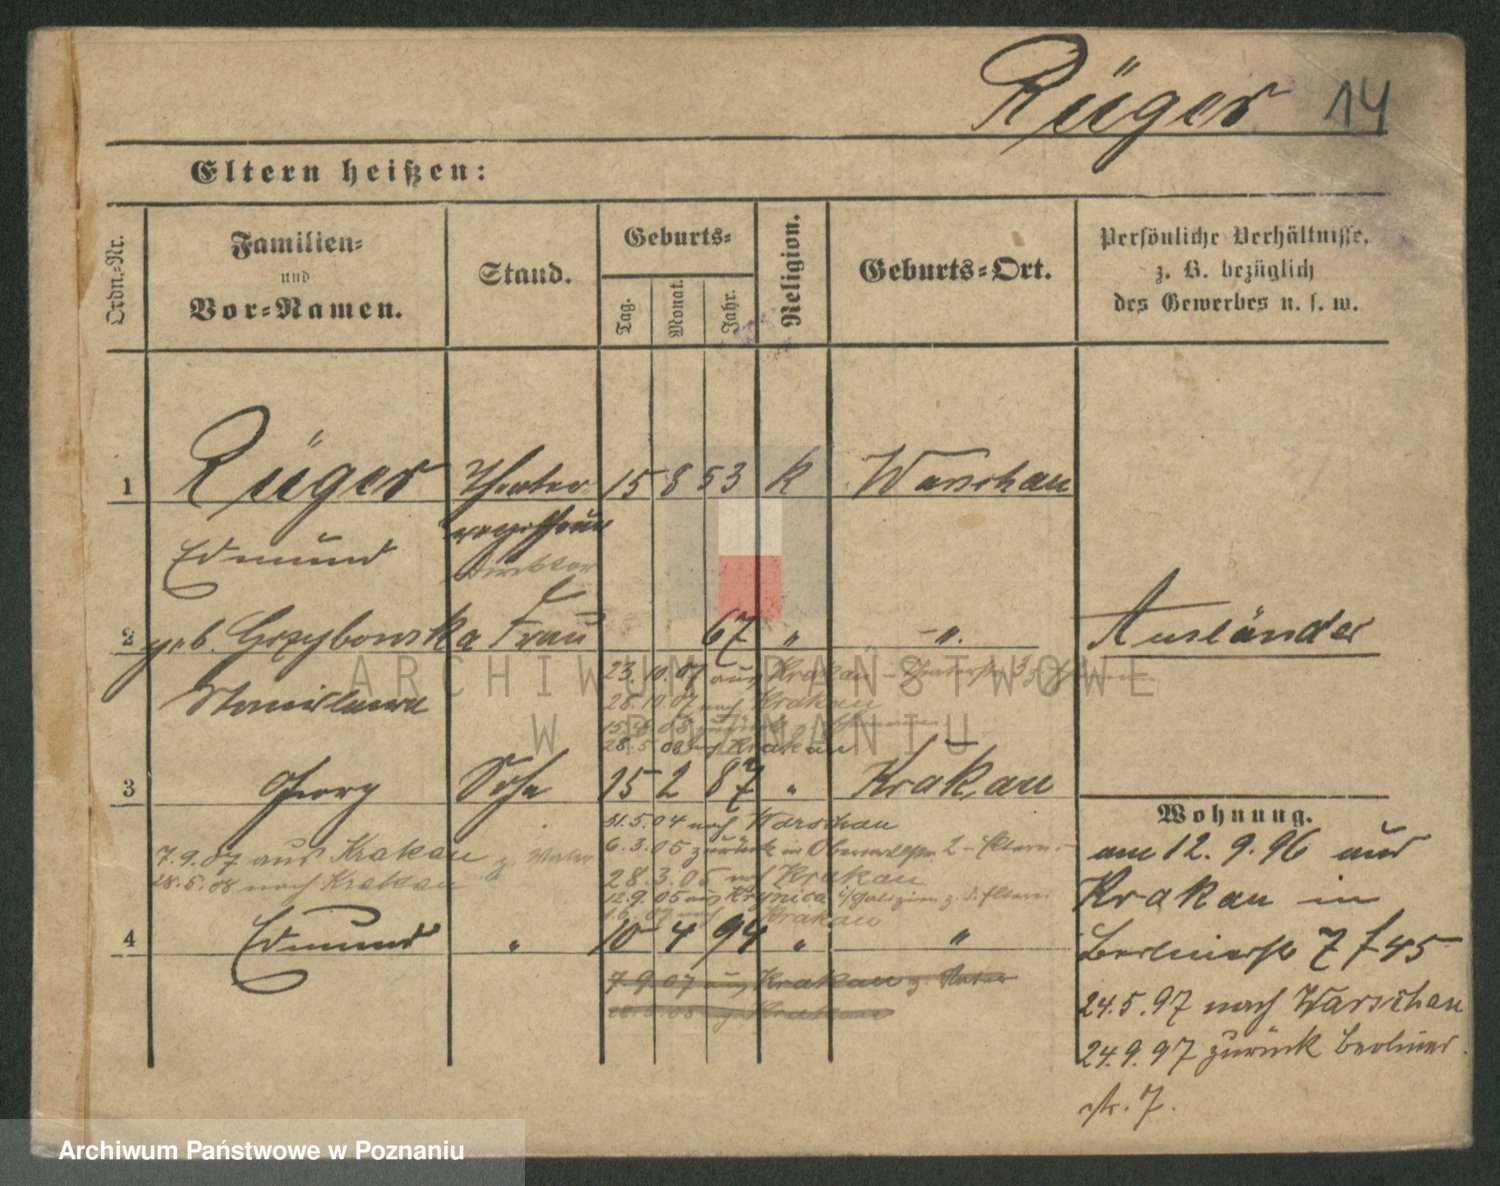 Rüger 14
Eltern heißen:
Ordn.-Nr.
Familien-
und
Vor-Namen.
Stand.
Geburts-
Tag.
Monat.
Jahr.
Religion.
Geburts-Ort.
Persönliche Verhältnisse,
z. B. bezüglich
des Gewerbes u. s. w.
1 Rüger Theater- 15 8 53 K Warschau
Edmund
Direktor
2 geb. Grzybowska Frau 67 " -".
Ausländer
Stanislawa
23.10.07 aus Krakau
28.10.07 nach Krakau
28.5.08 nach Krakau
3 Georg Sohn 15 2 87 " Krakau
31.5.04 nach Warschau
6.3.05 zurück in
28.3.05 nach Krakau
12.9.05 aus Krynica i/Galizien z. d. Eltern
nach Krakau
7.9.07 aus Krakau z. Vater
28.5.08 nach Krakau
4 Edmund " 10 4 94 " "
7.9.07 aus Krakau z. Vater
Krakau
Wohnung.
am 12.9.96 aus
Krakau in
Berlinerstr 7
24.5.97 nach Warschau
24.9.97 zurück Berliner
str. 7.
ARCHIWUM PAŃSTWOWE
W POZNANIU
Archiwum Państwowe w Poznaniu